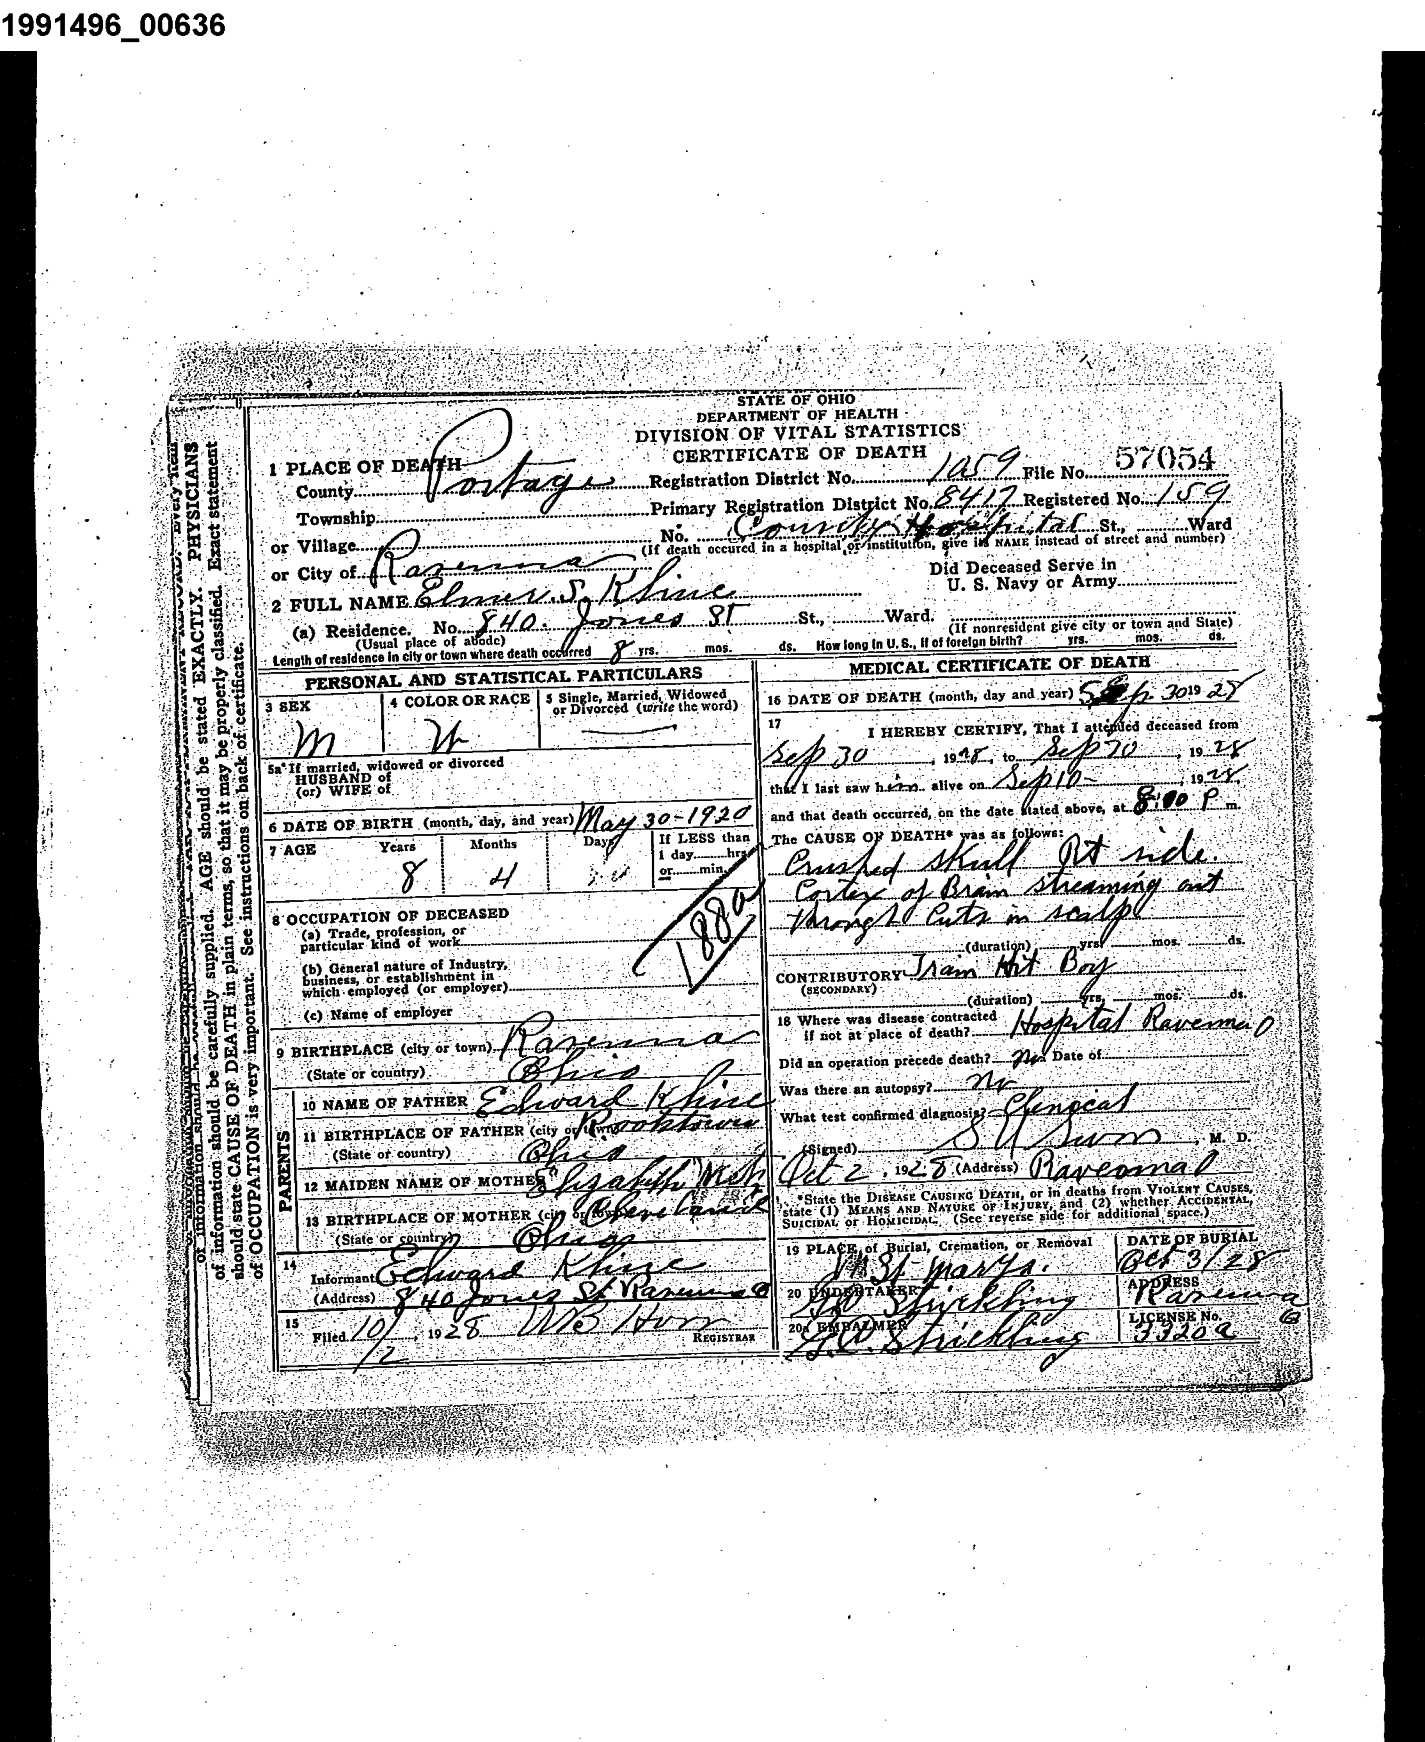 1991496_00636
STATE OF OHIO
DEPARTMENT OF HEALTH
DIVISION OF VITAL STATISTICS
CERTIFICATE OF DEATH
1 PLACE OF DEATH
County Portage Registration District No. 1059 File No. 57054
Township Primary Registration District No. 8417 Registered No. 159
or Village No. County Hospital St., Ward
(If death occured in a hospital or institution, give its NAME instead of street and number)
or City of Ravenna Did Deceased Serve in
U. S. Navy or Army
2 FULL NAME Elmer S. Kline
(a) Residence. No. 840. Jones St St., Ward.
(Usual place of abode) (If nonresident give city or town and State)
Length of residence in city or town where death occurred 8 yrs. mos. ds. How long in U. S., if of foreign birth? yrs. mos. ds.
PERSONAL AND STATISTICAL PARTICULARS
3 SEX 4 COLOR OR RACE 5 Single, Married, Widowed
or Divorced (write the word)
M W
5a If married, widowed or divorced
HUSBAND of
(or) WIFE of
6 DATE OF BIRTH (month, day, and year) May 30-1920
7 AGE Years Months Days If LESS than
1 day hrs
or min.
8 4
188a
8 OCCUPATION OF DECEASED
(a) Trade, profession, or
particular kind of work
(b) General nature of Industry,
business, or establishment in
which employed (or employer)
(c) Name of employer
9 BIRTHPLACE (city or town) Ravenna
(State or country) Ohio
PARENTS
10 NAME OF FATHER Edward Kline
11 BIRTHPLACE OF FATHER (city or town)
(State or country) Ohio
12 MAIDEN NAME OF MOTHER Elizabeth
13 BIRTHPLACE OF MOTHER (city or town) Cleveland
(State or country) Ohio
14
Informant Edward Kline
(Address) 840 Jones St Ravenna O
15
Filed 10/2, 1928 WB Horr
REGISTRAR
MEDICAL CERTIFICATE OF DEATH
16 DATE OF DEATH (month, day and year) Sep 30 1928
17 I HEREBY CERTIFY, That I attended deceased from
Sep 30, 1928, to Sep 30, 1928
that I last saw him alive on Sep 1928,
and that death occurred, on the date stated above, at 8:00 P m.
The CAUSE OF DEATH* was as follows:
Crushed skull Rt side.
Cortex of Brain streaming out
through Cuts in scalp
(duration) yrs. mos. ds.
CONTRIBUTORY Train Hit Boy
(SECONDARY)
(duration) yrs. mos. ds.
18 Where was disease contracted
if not at place of death? Hospital Ravenna O
Did an operation precede death? No Date of
Was there an autopsy? No
What test confirmed diagnosis? Clinocal
(Signed) M. D.
Oct 2, 1928 (Address) Ravenna O
*State the DISEASE CAUSING DEATH, or in deaths from VIOLENT CAUSES,
state (1) MEANS AND NATURE OF INJURY, and (2) whether ACCIDENTAL,
SUICIDAL or HOMICIDAL. (See reverse side for additional space.)
19 PLACE of Burial, Cremation, or Removal DATE OF BURIAL
St-Marys. Oct 3/28
20 UNDERTAKER ADDRESS
Strickling Ravenna
20a EMBALMER LICENSE No.
Strickling 3320a
PHYSICIANS
of information should be carefully supplied. AGE should be stated EXACTLY.
should state CAUSE OF DEATH in plain terms, so that it may be properly classified. Exact statement
of OCCUPATION is very important. See instructions on back of certificate.